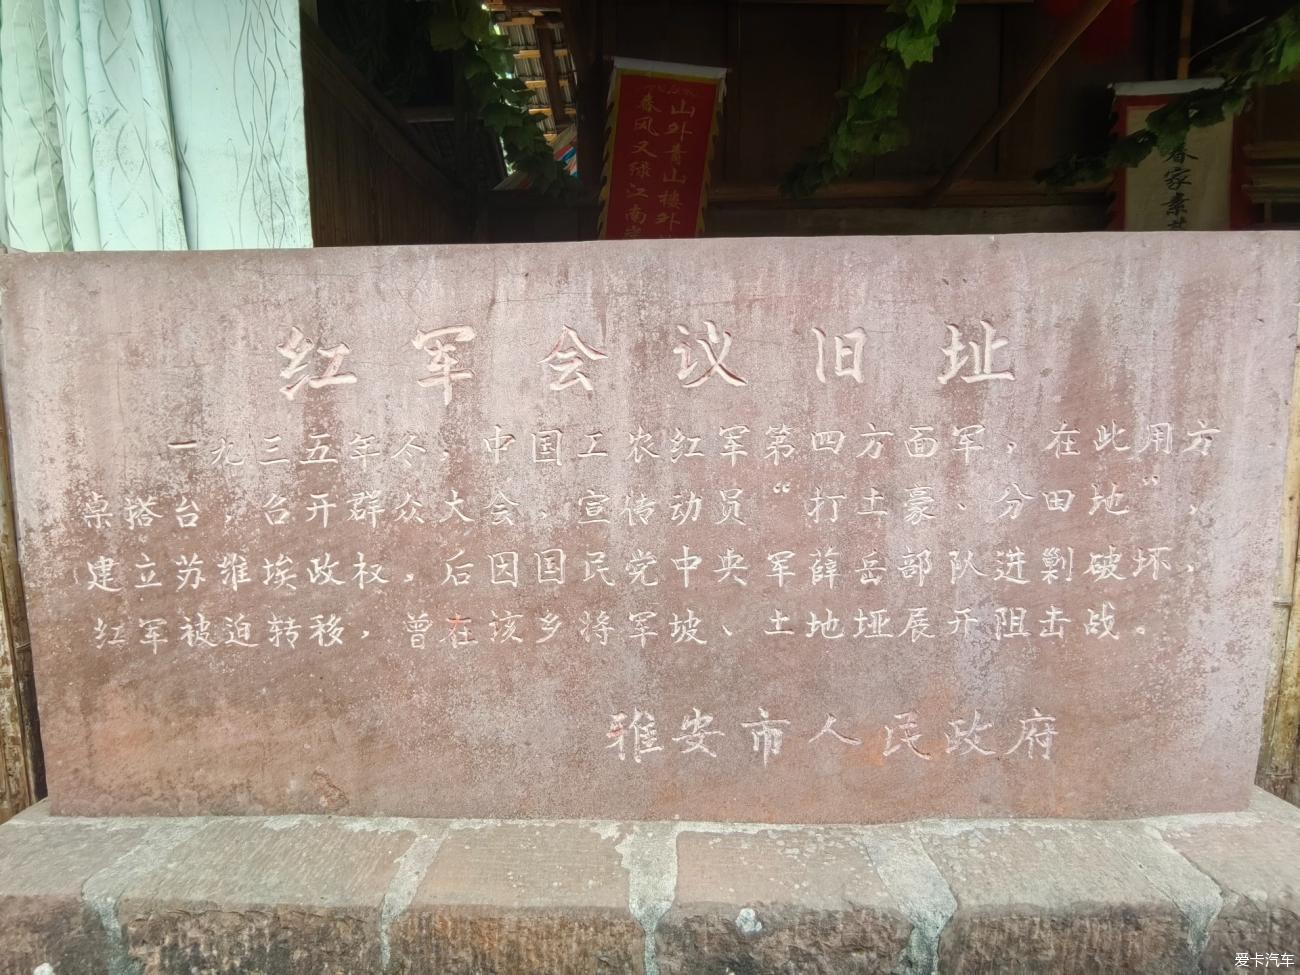 山外青山楼外
春风又绿江南岸
春家素
红军会议旧址
一九三五年冬，中国工农红军第四方面军，在此用方
桌搭台，召开群众大会，宣传动员“打土豪、分田地”，
建立苏维埃政权，后因国民党中央军薛岳部队进剿破坏，
红军被迫转移，曾在该乡将军坡、土地垭展开阻击战。
雅安市人民政府
爱卡汽车